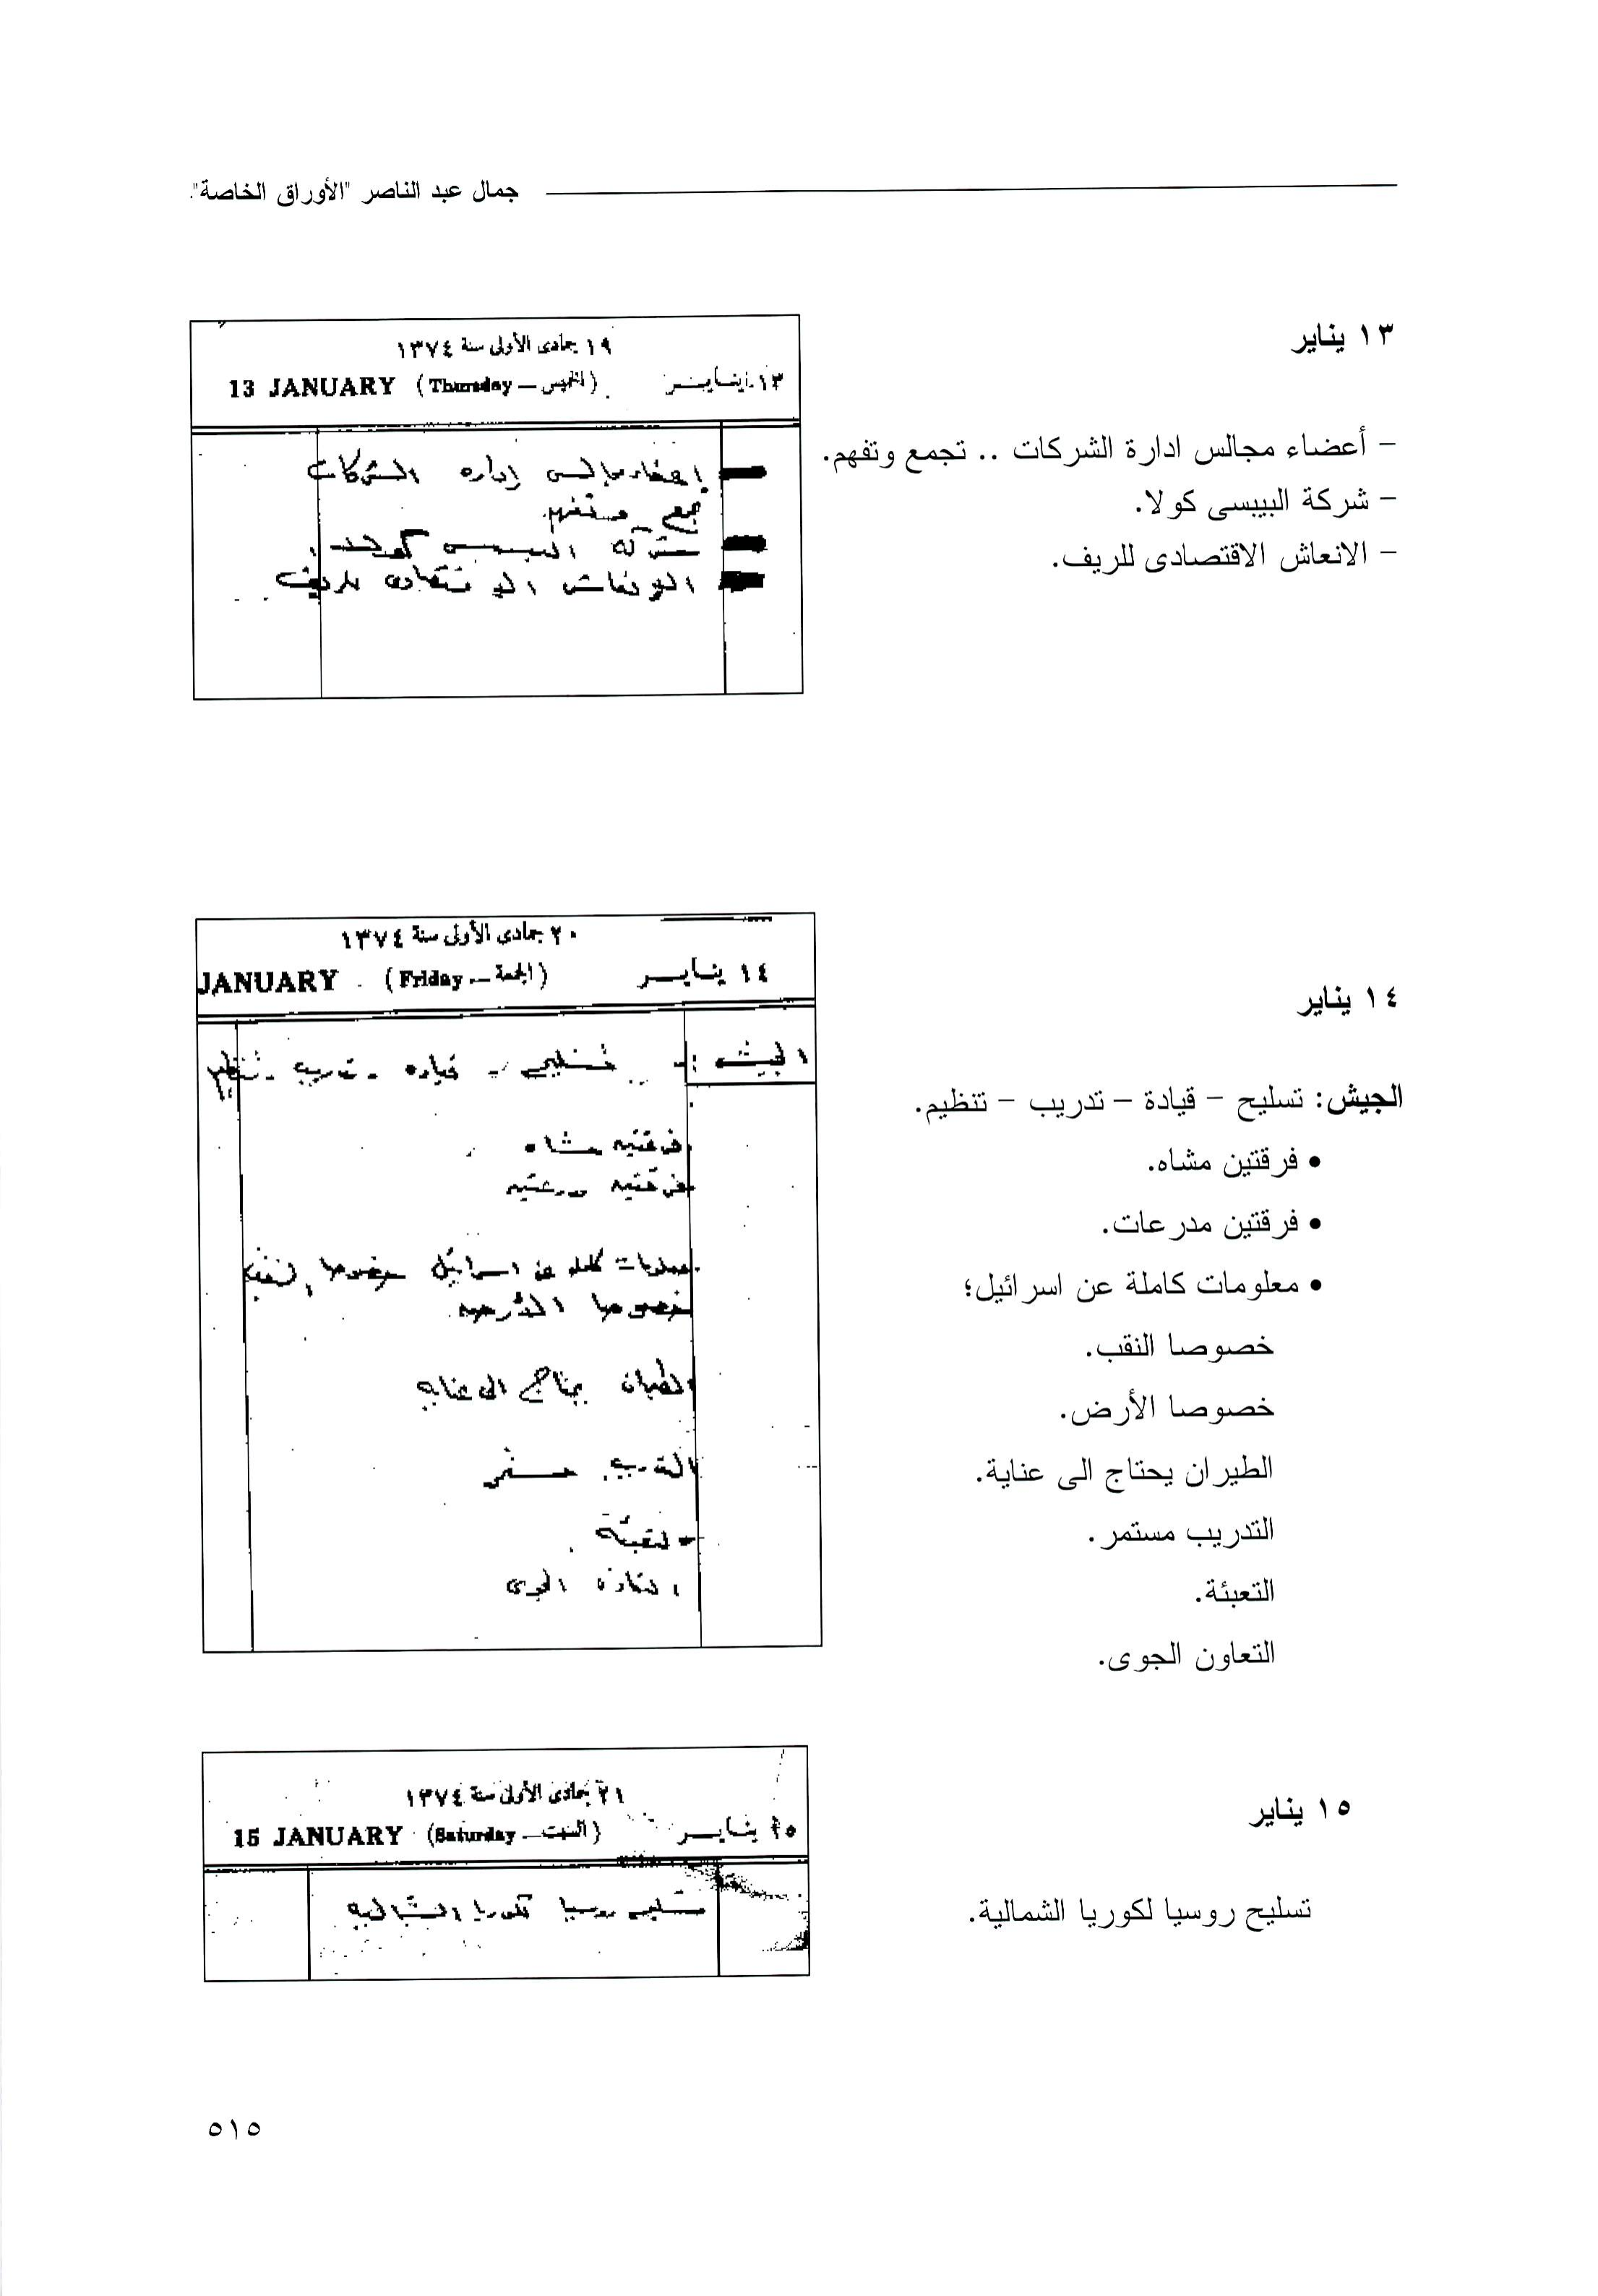 جمال عبد الناصر "الأوراق الخاصة".
١٣ يناير
– أعضاء مجالس ادارة الشركات .. تجمع وتفهم.
– شركة البيبسى كولا.
– الانعاش الاقتصادى للريف.
١٩ جمادى الأولى سنة ١٣٧٤
13 JANUARY (Thursday – الخميس) ١٣ ينايـر
إعضاء مجالس إداره الشركات
تجمع وتفهم
شركه البيبسى كولا
الانعاش الاقتصادى للريف
١٤ يناير
الجيش: تسليح – قيادة – تدريب – تنظيم.
• فرقتين مشاه.
• فرقتين مدرعات.
• معلومات كاملة عن اسرائيل؛
خصوصا النقب.
خصوصا الأرض.
الطيران يحتاج الى عناية.
التدريب مستمر.
التعبئة.
التعاون الجوى.
٢٠ جمادى الأولى سنة ١٣٧٤
JANUARY (Friday – الجمعة) ١٤ ينايـر
الجيش :- تسليح - قياده - تدريب - تنظيم
فرقتين مشاه
فرقتين
معلومات كامله عن اسرائيل خصوصا النقب
خصوصا
الطيران يحتاج الى عنايه
التدريب مستمر
التعبئة
التعاون الجوى
١٥ يناير
تسليح روسيا لكوريا الشمالية.
٢١ جمادى الأولى سنة ١٣٧٤
15 JANUARY (Saturday – السبت) ١٥ ينايـر
تسليح روسيا لكوريا الشماليه
٥١٥